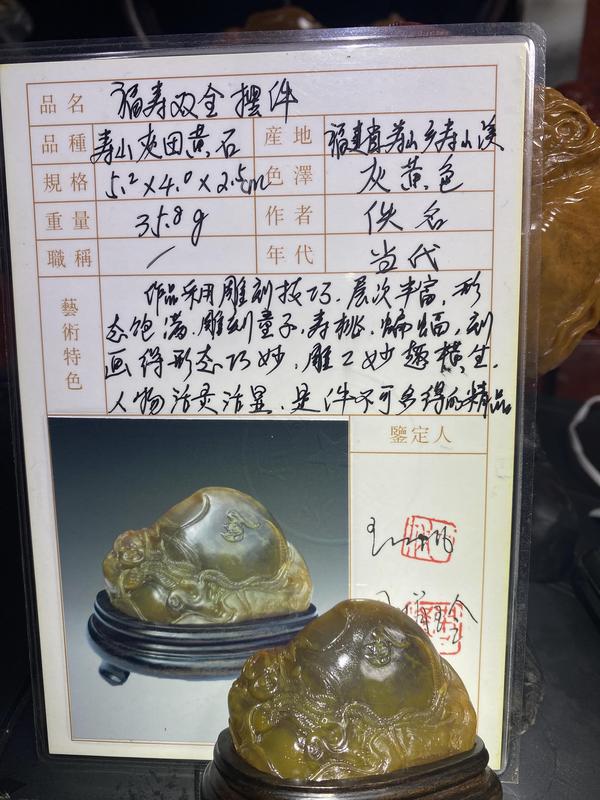 品名 福寿双全摆件
品種 寿山夾田黄石 産地 福建省寿山乡寿山溪
規格 5.2×4.0×2.5cm 色澤 灰黄色
重量 35.8g 作者 佚名
職稱 / 年代 当代
藝術特色
作品采用雕刻技巧，层次丰富，形
态饱满，雕刻童子、寿桃、蝙蝠，刻
画得形态巧妙，雕工妙趣横生，
人物活灵活显，是件不可多得的精品
鑒定人